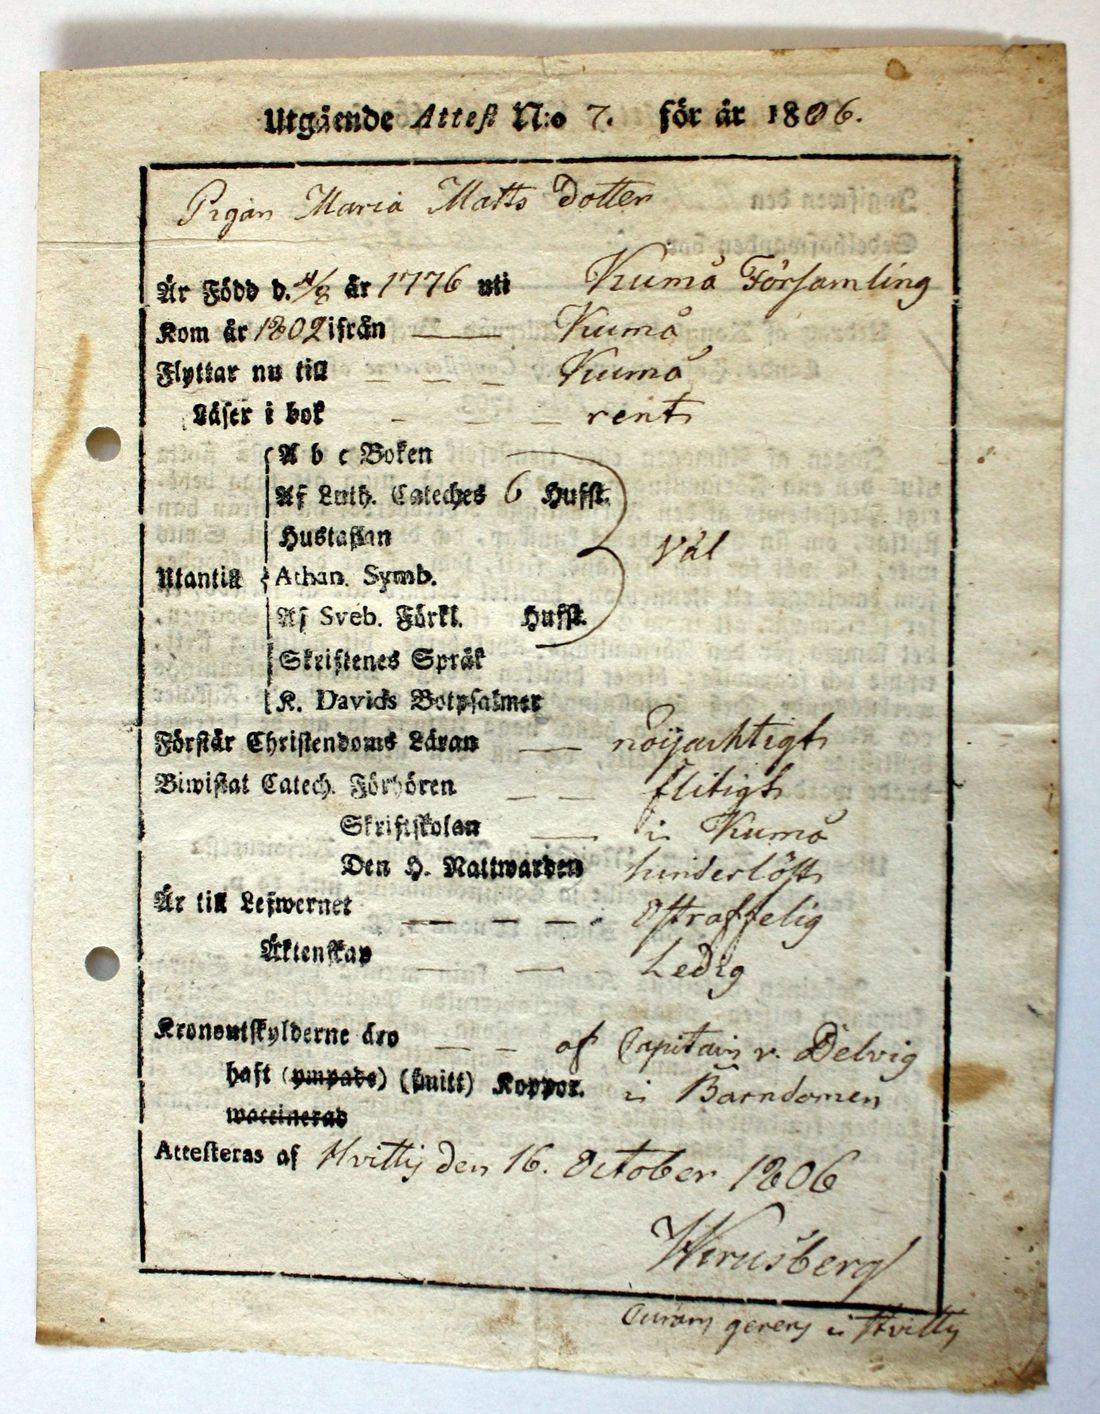 Utgående Attest N:o 7. för år 1806.
Pigan Maria Matts Dotter
Är Född d. 4/8 år 1776 uti Kumå Församling
Kom år 1802 ifrån Kumå
Flyttar nu till Kumå
Läser i bok rent
A b c Boken
Af Luth. Cateches 6 Hufst.
Hustaflan
Väl
Utantill Athan. Symb.
Af Sveb. Förkl. Hufst.
Skriftenes Språk
K. Davids Botpsalmer
Förstår Christendoms Läran nöijachtigt
Biwistat Catech. Förhören flitigt
Skriftskolan i Kumå
Den H. Nattwarden hinderlöst
Är till Lefwernet Ostraffelig
Äktenskap Ledig
Kronoutskylderne äro af Capitain v. Delvig
haft (ympade) (smitt) Koppor. i Barndomen
waccinerad
Attesteras af Hvittis den 16. October 1806
Curam gerens i Hvittis